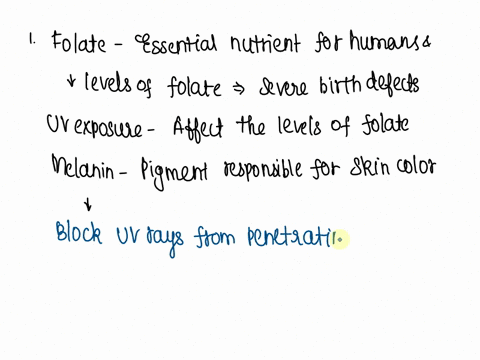 1. Folate - Essential nutrient for humans &
↓ levels of folate ⇒ severe birth defects
UV exposure - Affect the levels of folate
Melanin - Pigment responsible for skin color
↓
Block UV rays from penetratin